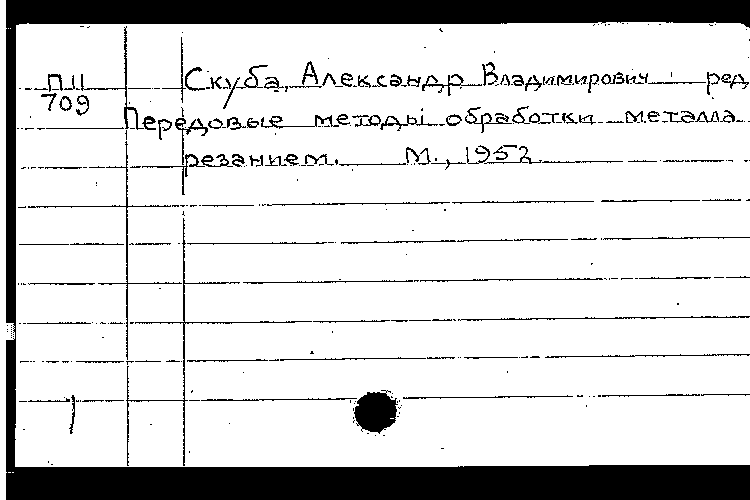 П11
709
Скуба, Александр Владимирович ред
Передовые методы обработки металла
резанием. М., 1952